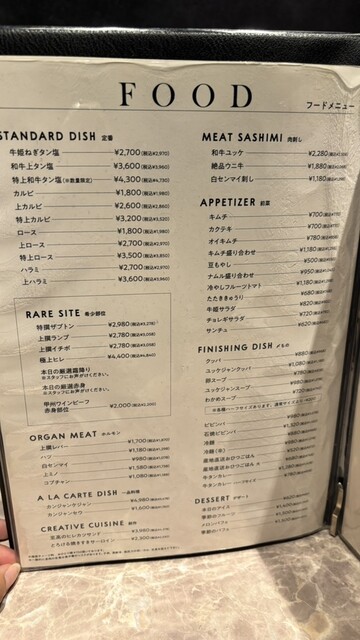 FOOD
フードメニュー
STANDARD DISH 定番
牛姫ねぎタン塩 ¥2,700(税込¥2,970)
和牛上タン塩 ¥3,600(税込¥3,960)
特上和牛タン塩(※数量限定) ¥4,300(税込¥4,730)
カルビ ¥1,800(税込¥1,980)
上カルビ ¥2,600(税込¥2,860)
特上カルビ ¥3,200(税込¥3,520)
ロース ¥1,800(税込¥1,980)
上ロース ¥2,700(税込¥2,970)
特上ロース ¥3,500(税込¥3,850)
ハラミ ¥2,700(税込¥2,970)
上ハラミ ¥3,600(税込¥3,960)
RARE SITE 希少部位
特撰ザブトン ¥2,980(税込¥3,278)
上撰ランプ ¥2,780(税込¥3,058)
上撰イチボ ¥2,780(税込¥3,058)
極上ヒレ ¥4,400(税込¥4,840)
本日の厳選霜降り
※スタッフにお声がけください。
本日の厳選赤身
※スタッフにお声がけください。
甲州ワインビーフ
赤身部位 ¥2,000(税込¥2,200)
ORGAN MEAT ホルモン
上撰レバー ¥1,700
ハツ ¥1,180
白センマイ ¥980
上ミノ ¥1,580
コプチャン ¥1,080
A LA CARTE DISH 一品料理
カンジャンケジャン ¥4,980
カンジャンセウ ¥1,600
CREATIVE CUISINE 創作
至高のヒレカツサンド ¥3,980
とろける焼きすきサーロイン ¥2,300
MEAT SASHIMI 肉刺し
和牛ユッケ ¥2,280
絶品ウニ牛 ¥1,880
白センマイ刺し ¥1,180
APPETIZER 前菜
キムチ ¥700
カクテキ ¥700
オイキムチ ¥780
キムチ盛り合わせ ¥1,180
豆もやし ¥500
ナムル盛り合わせ ¥950
冷やしフルーツトマト ¥1,180
たたききゅうり ¥680
牛姫サラダ ¥820
チョレギサラダ ¥720
サンチュ ¥620
FINISHING DISH 〆もの
クッパ ¥880
ユッケジャンクッパ ¥1,080
卵スープ ¥780
ユッケジャンスープ ¥980
わかめスープ
ビビンバ ¥980
石焼ビビンバ ¥1,320
冷麺
冷麺(水) ¥520
DESSERT デザート
本日のアイス ¥600
季節のフルーツ
メロンパフェ
季節のパフェ